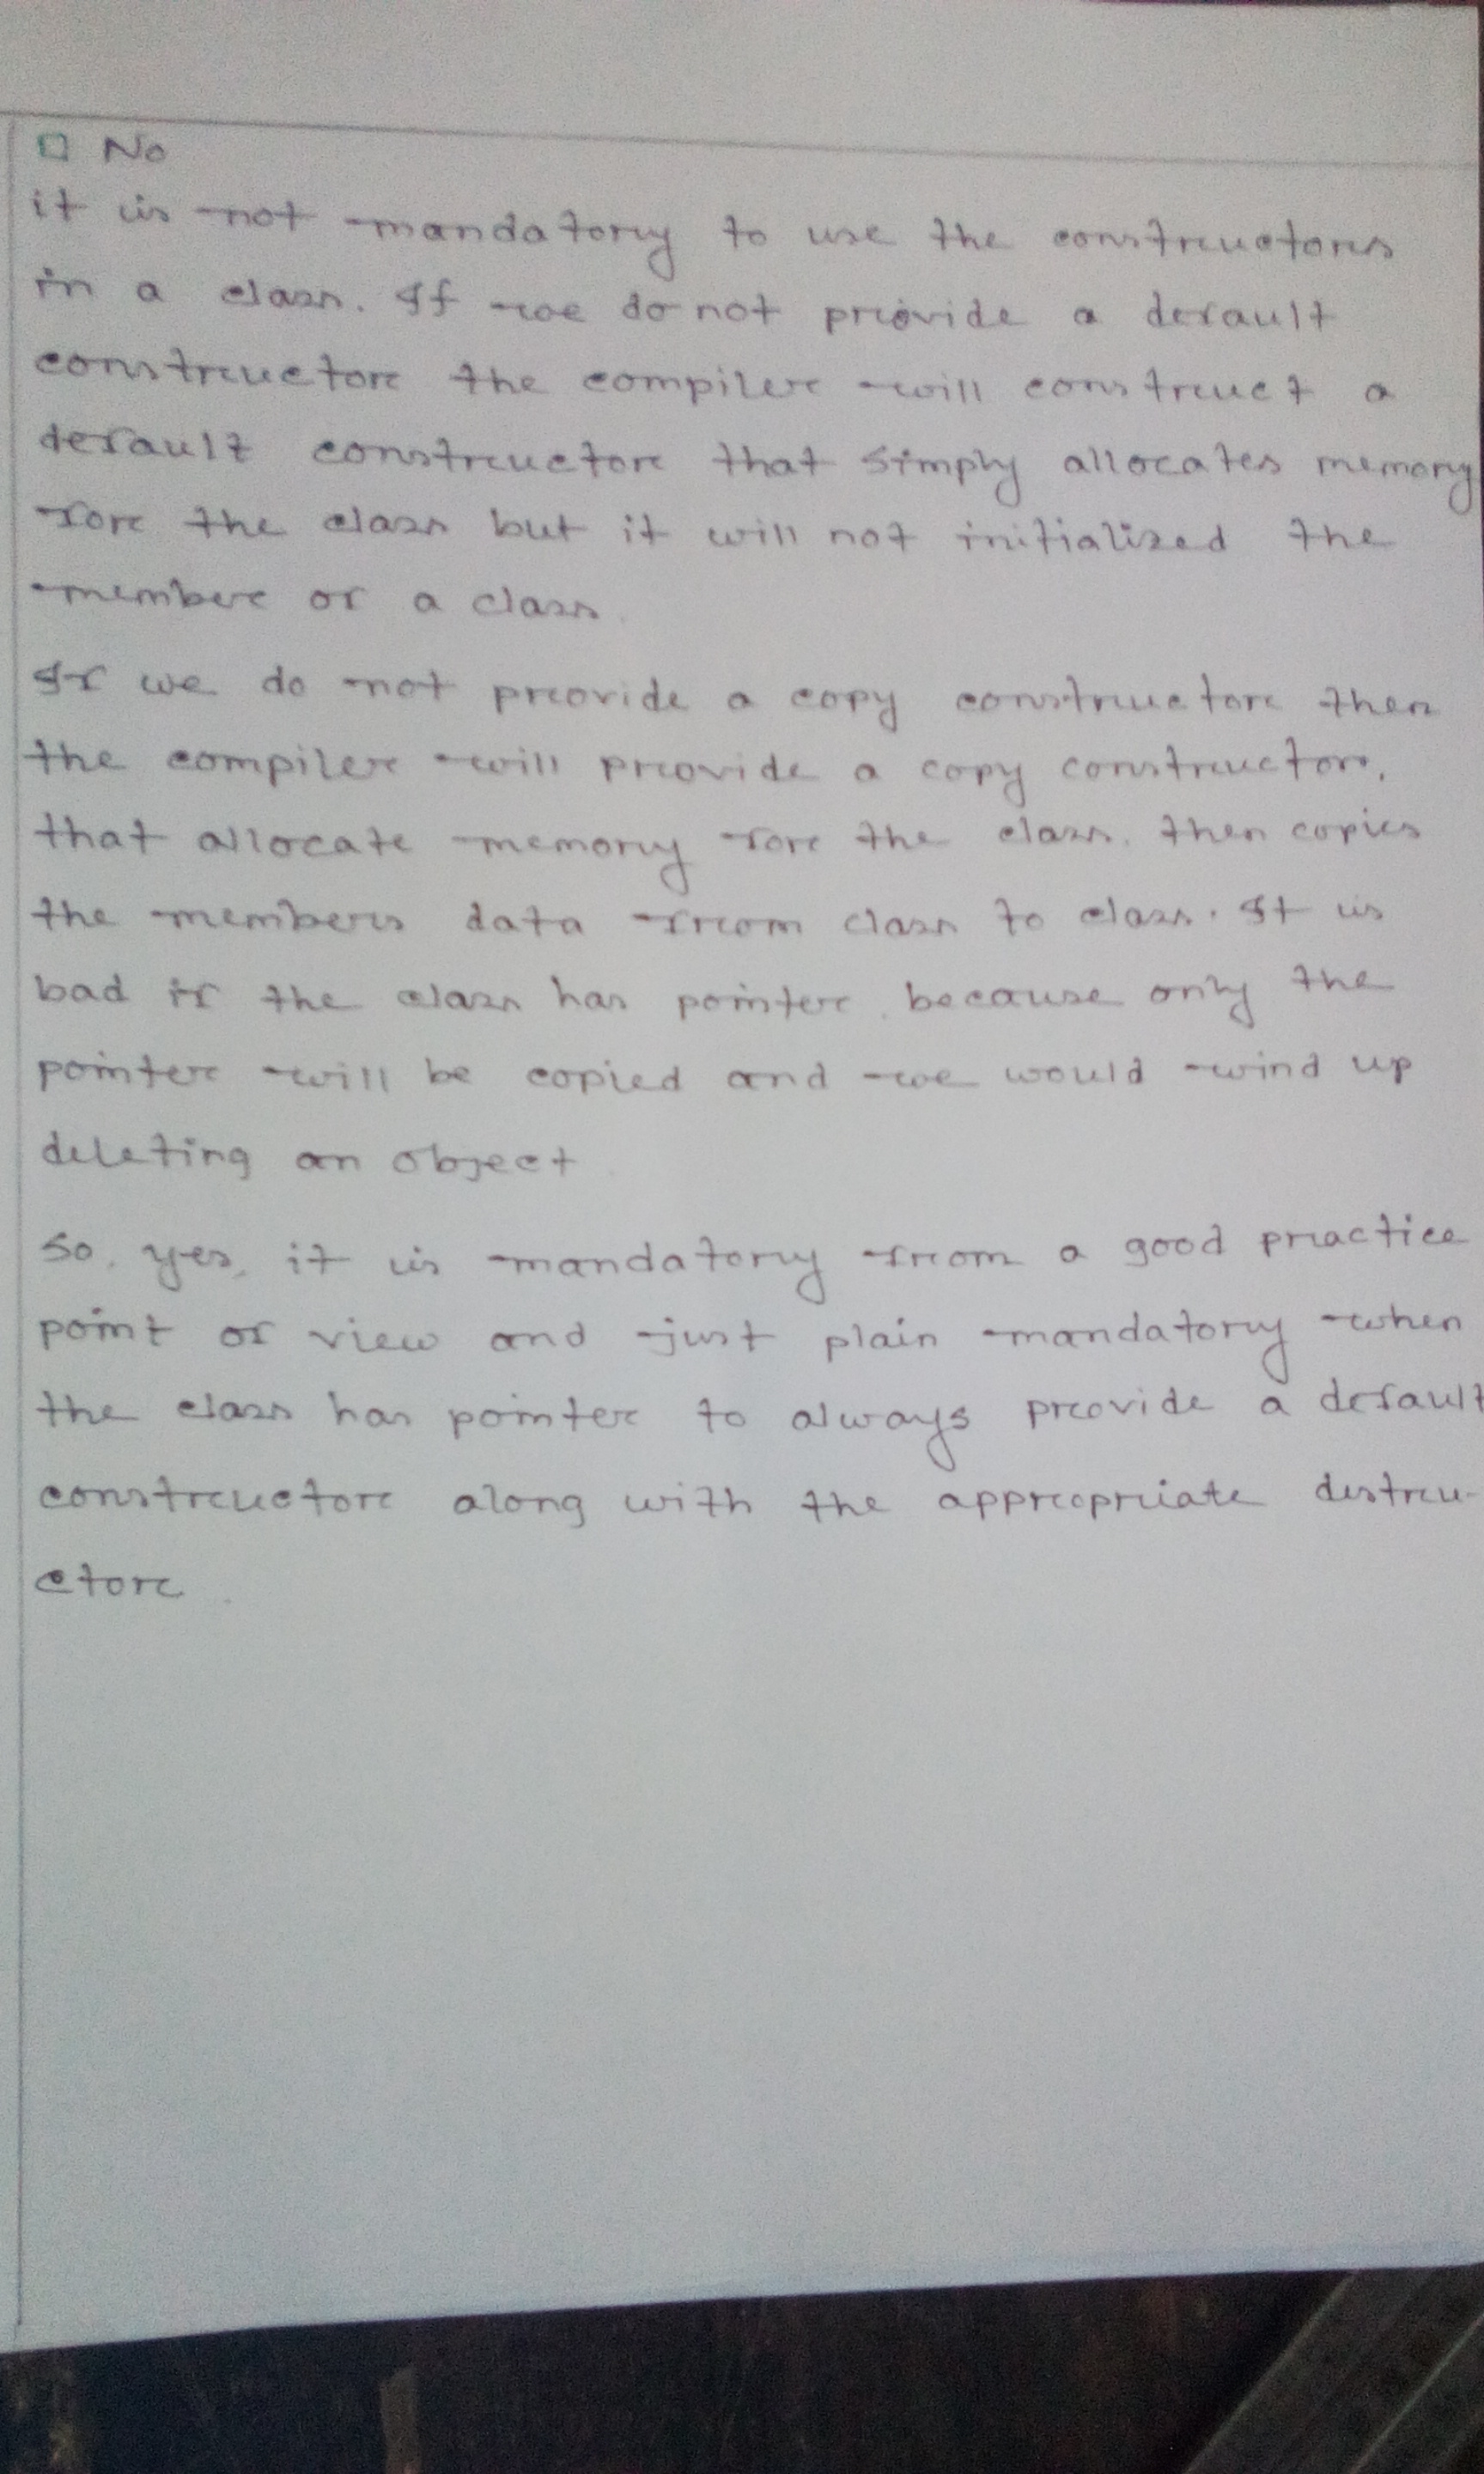 □ No
it is not mandatory to use the constructors
in a class. If we do not provide a default
constructor the compiler will construct a
default constructor that simply allocates memory
for the class but it will not initialized the
member of a class.
If we do not provide a copy constructor then
the compiler will provide a copy constructor,
that allocate memory for the class, then copies
the members data from class to class. It is
bad if the class has pointer, because only the
pointer will be copied and we would wind up
deleting an object
So, yes, it is mandatory from a good practice
point of view and just plain mandatory when
the class has pointer to always provide a default
constructor along with the appropriate destru-
ctor.